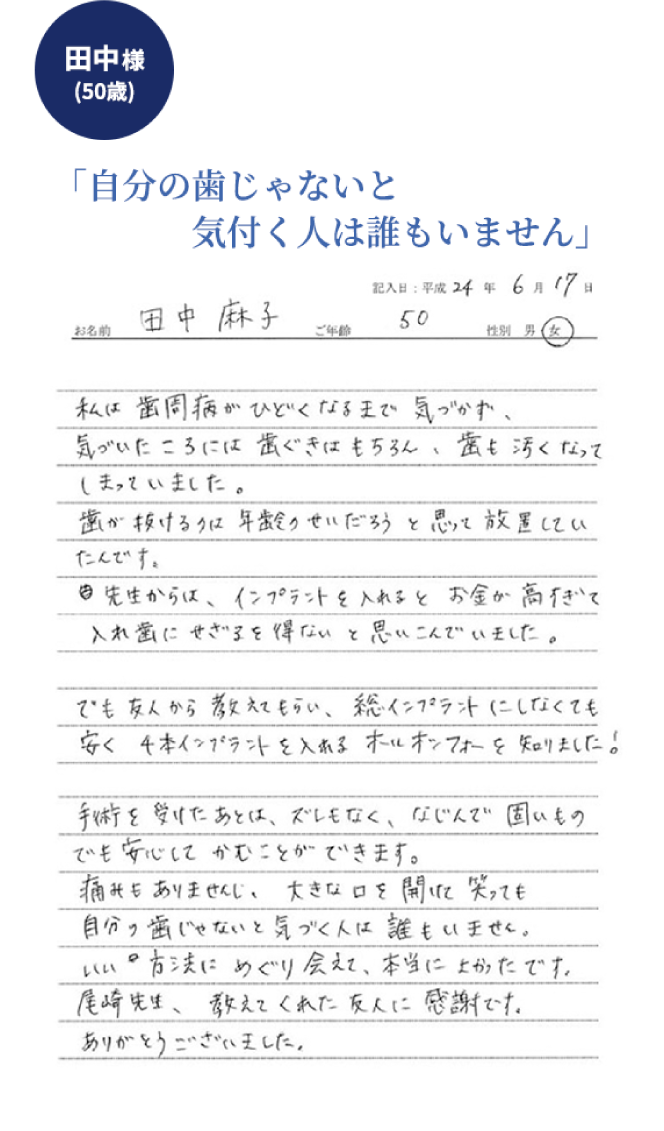 田中様
(50歳)
「自分の歯じゃないと
気付く人は誰もいません」
記入日：平成 24 年 6 月 17 日
お名前 田中 麻子 ご年齢 50 性別 男 女
私は歯周病がひどくなるまで気づかず、
気づいたころには歯ぐきはもちろん、歯も汚くなって
しまっていました。
歯が抜けるのは年齢のせいだろうと思って放置してい
たんです。
先生からは、インプラントを入れるとお金が高すぎて
入れ歯にせざるを得ないと思いこんでいました。
でも友人から教えてもらい、総インプラントにしなくても
安く4本インプラントを入れるオールオンフォーを知りました！
手術を受けたあとは、ズレもなく、なじんで固いもの
でも安心してかむことができます。
痛みもありませんし、大きな口を開けて笑っても
自分の歯じゃないと気づく人は誰もいません。
いい方法にめぐり会えて、本当によかったです。
尾崎先生、教えてくれた友人に感謝です。
ありがとうございました。